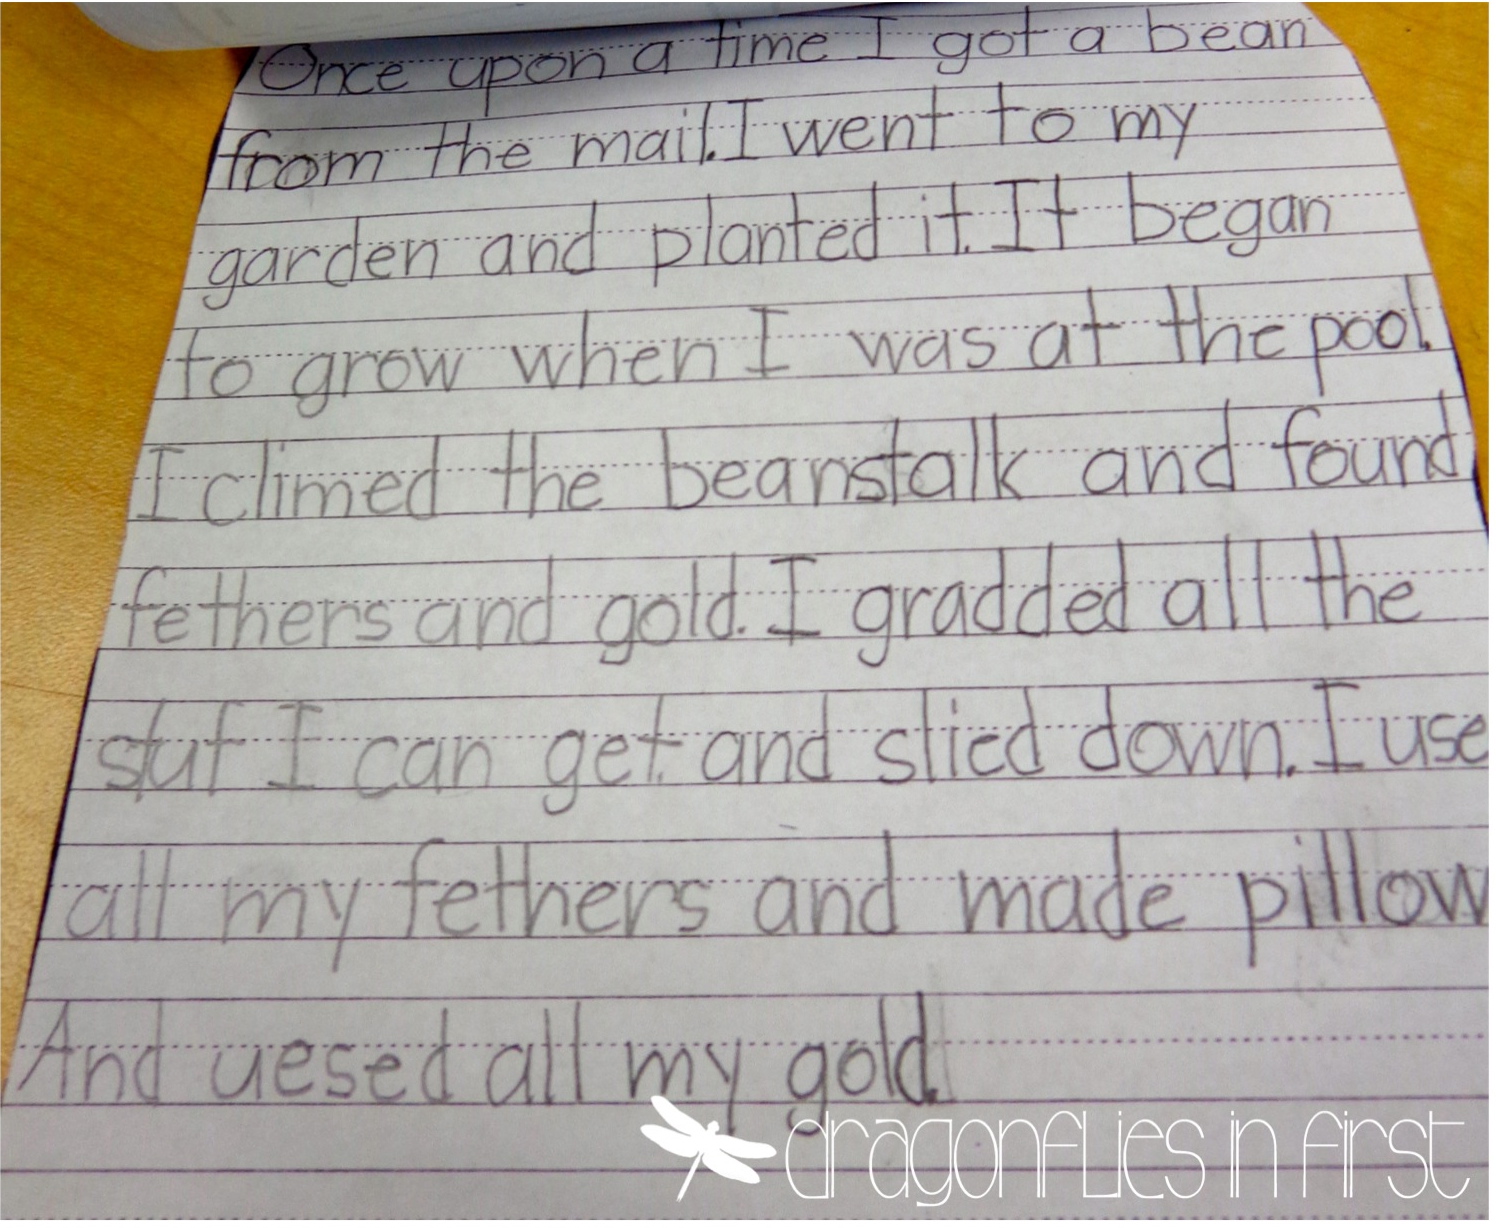 Once upon a time I got a bean
from the mail. I went to my
garden and planted it. It began
to grow when I was at the pool.
I climed the beanstalk and found
fethers and gold. I gradded all the
stuf I can get and slied down. I use
all my fethers and made pillow
And uesed all my gold.
dragonflies in first